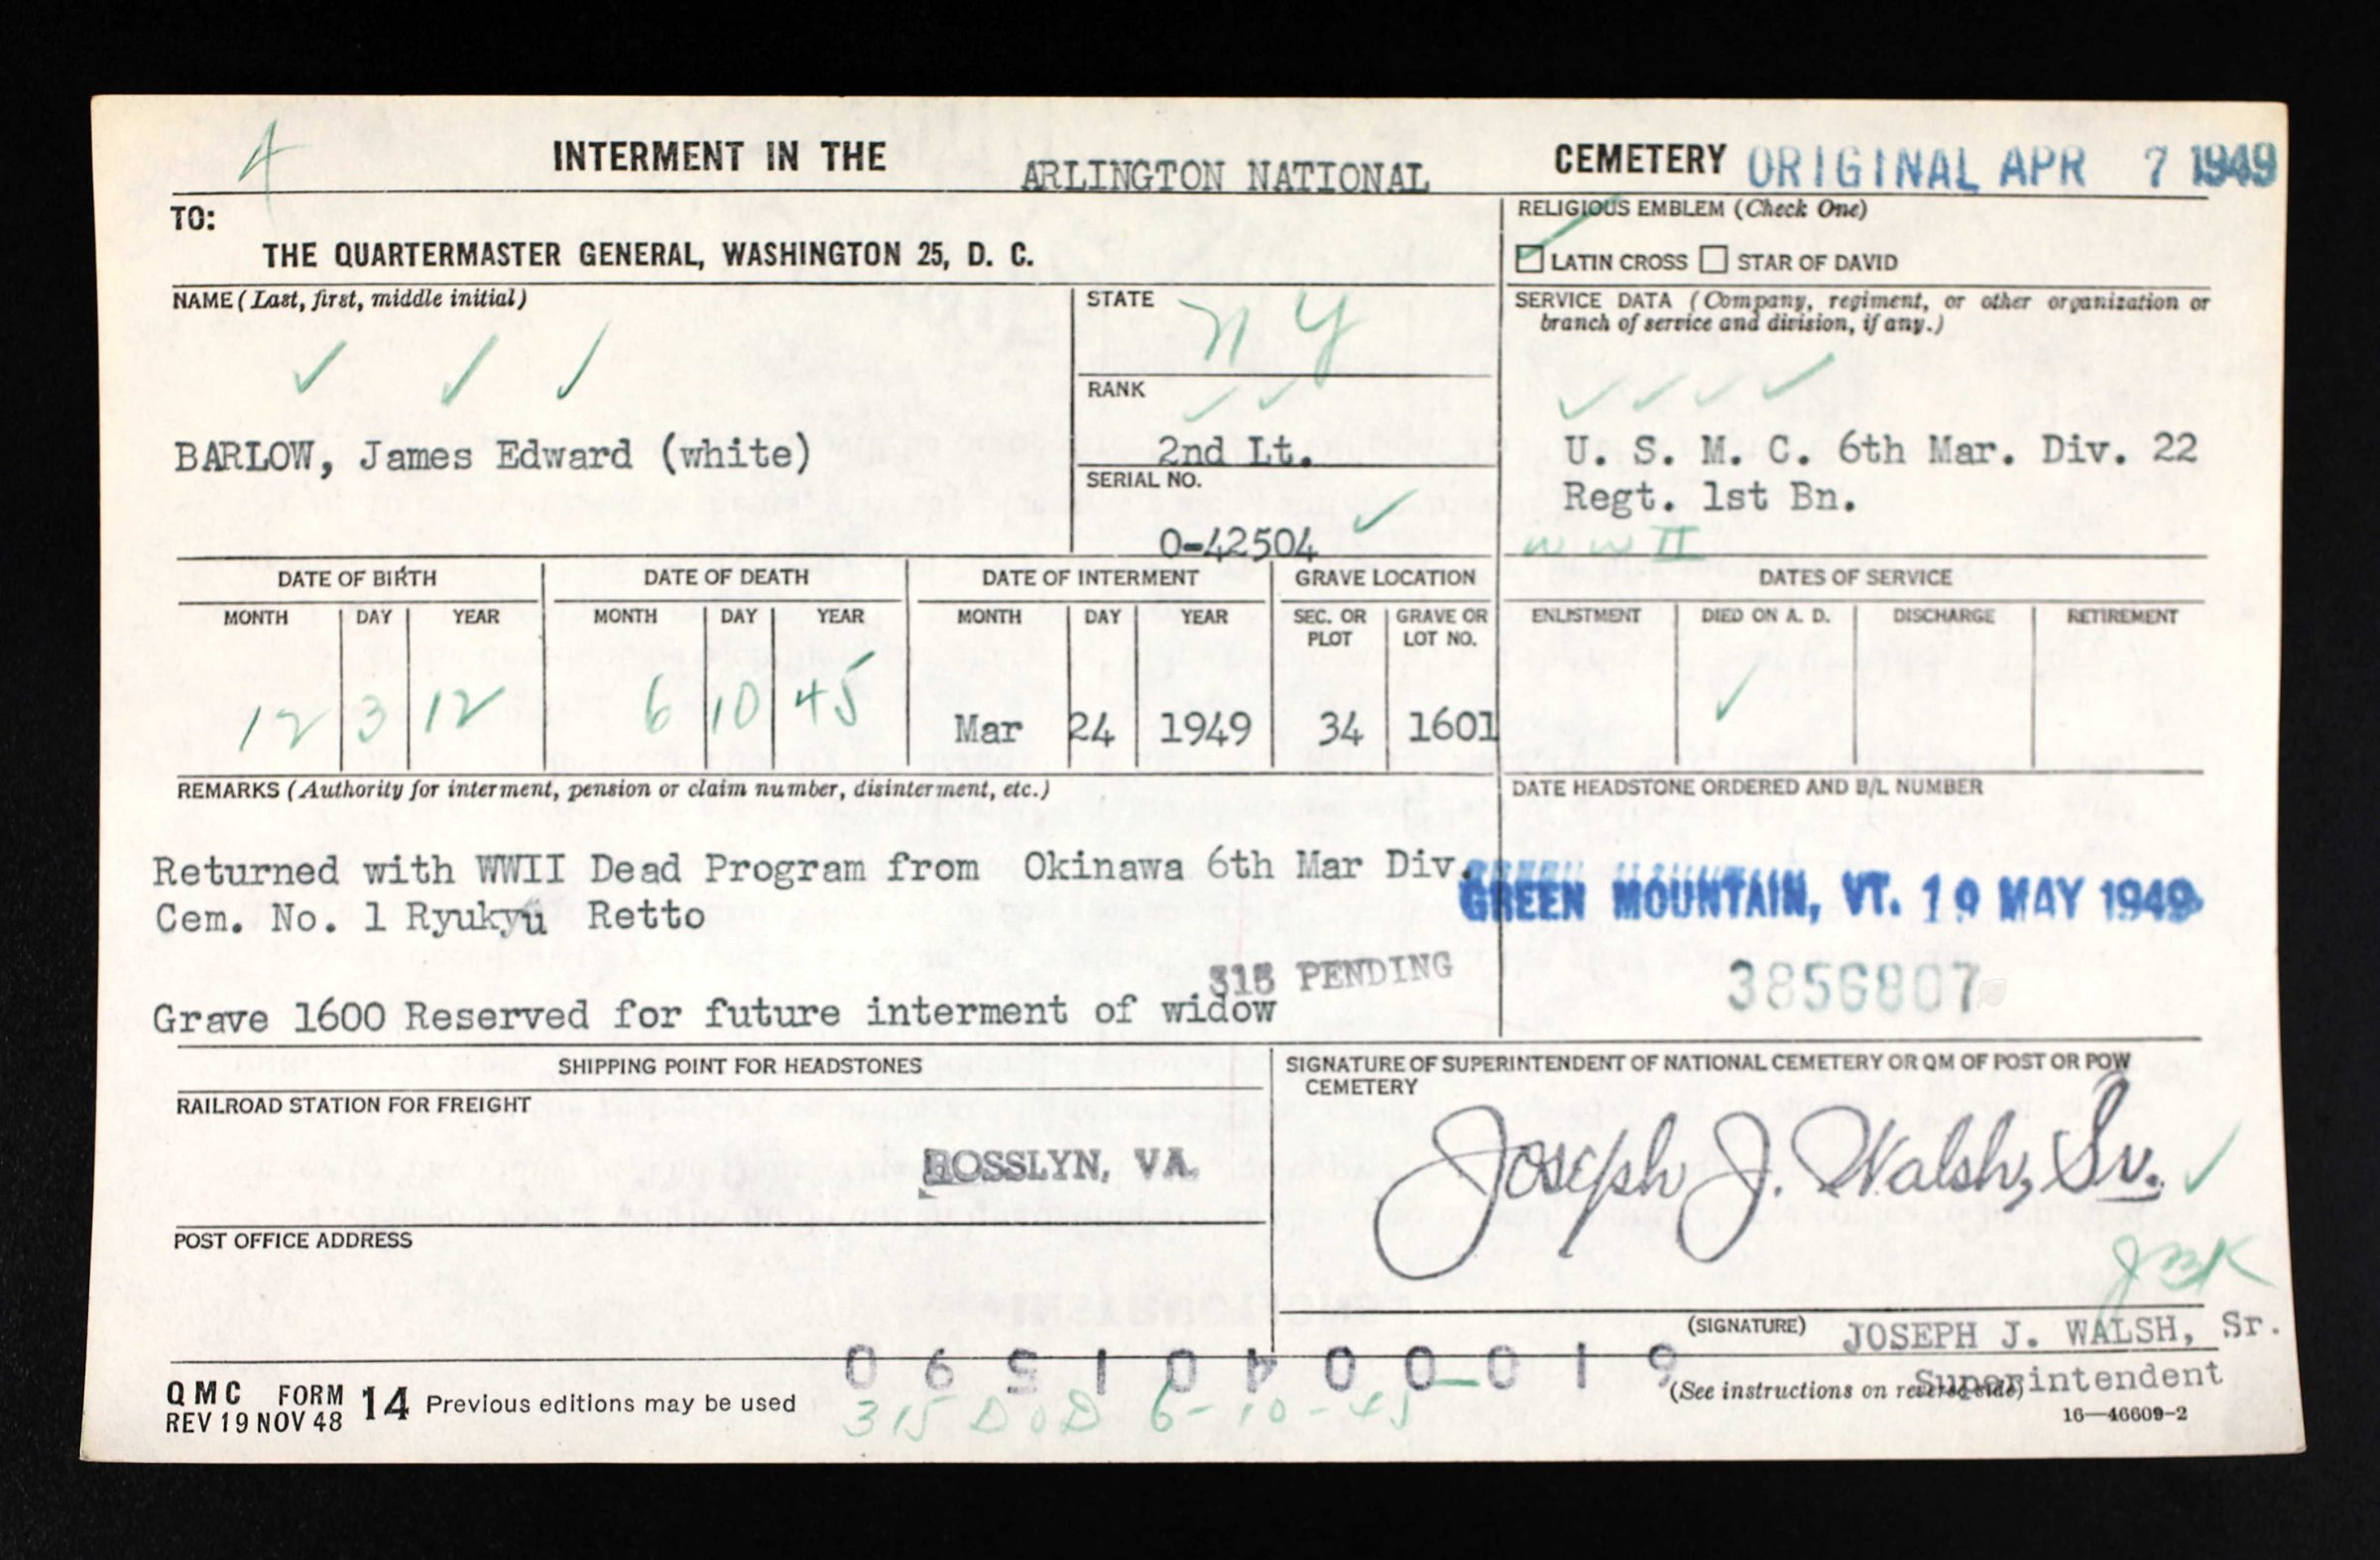 A
INTERMENT IN THE ARLINGTON NATIONAL CEMETERY ORIGINAL APR 7 1949
TO:
THE QUARTERMASTER GENERAL, WASHINGTON 25, D. C.
RELIGIOUS EMBLEM (Check One)
LATIN CROSS STAR OF DAVID
NAME (Last, first, middle initial)
BARLOW, James Edward (white)
STATE
N Y
RANK
2nd Lt.
SERIAL NO.
O-42504
SERVICE DATA (Company, regiment, or other organization or
branch of service and division, if any.)
U. S. M. C. 6th Mar. Div. 22
Regt. 1st Bn.
WW II
DATE OF BIRTH DATE OF DEATH DATE OF INTERMENT GRAVE LOCATION DATES OF SERVICE
MONTH DAY YEAR MONTH DAY YEAR MONTH DAY YEAR SEC. OR PLOT GRAVE OR LOT NO. ENLISTMENT DIED ON A. D. DISCHARGE RETIREMENT
12 3 12 6 10 45 Mar 24 1949 34 1601
REMARKS (Authority for interment, pension or claim number, disinterment, etc.)
Returned with WWII Dead Program from Okinawa 6th Mar Div.
Cem. No. 1 Ryukyu Retto
315 PENDING
Grave 1600 Reserved for future interment of widow
DATE HEADSTONE ORDERED AND B/L NUMBER
GREEN MOUNTAIN, VT. 19 MAY 1949
3856807
SHIPPING POINT FOR HEADSTONES
RAILROAD STATION FOR FREIGHT
ROSSLYN, VA.
POST OFFICE ADDRESS
SIGNATURE OF SUPERINTENDENT OF NATIONAL CEMETERY OR QM OF POST OR POW
CEMETERY
Joseph J. Walsh, Sr.
JBK
(SIGNATURE) JOSEPH J. WALSH, Sr.
Superintendent
(See instructions on reverse side)
16—46609-2
QMC FORM 14 Previous editions may be used
REV 19 NOV 48
06510400019
315 DOD 6-10-45